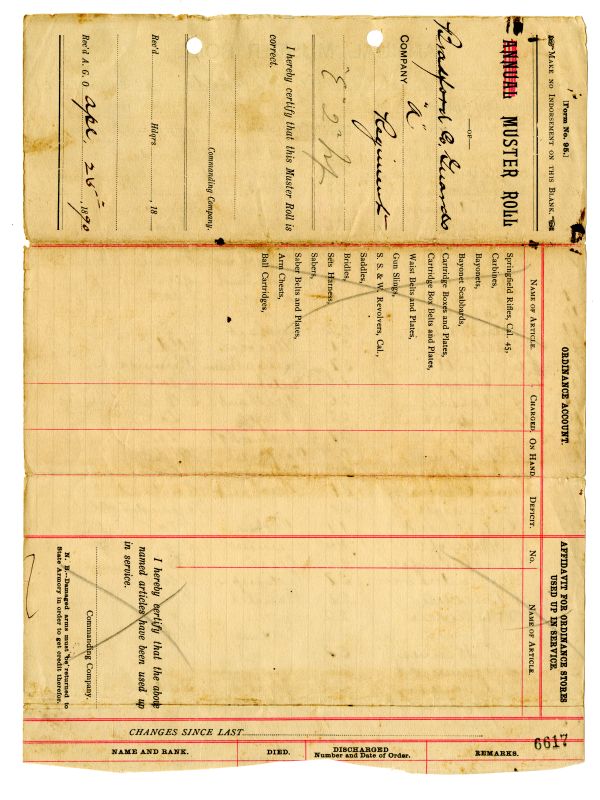 [Form No. 95.]
MAKE NO INDORSEMENT ON THIS BLANK.
ANNUAL MUSTER ROLL
—OF—
Bradford Co. Guards
COMPANY "A"
Regiment
"E" 2nd
I hereby certify that this Muster Roll is
correct.
Commanding Company.
Rec'd Hdqrs , 18
Rec'd A. G. O. Apl. 25 , 1890
ORDINANCE ACCOUNT.
NAME OF ARTICLE. CHARGED. ON HAND. DEFICIT.
Springfield Rifles, Cal. 45,
Carbines,
Bayonets,
Bayonet Scabbards,
Cartridge Boxes and Plates,
Cartridge Box Belts and Plates,
Waist Belts and Plates,
Gun Slings,
S. S. & W. Revolvers, Cal.,
Saddles,
Bridles,
Sets Harness,
Sabers,
Saber Belts and Plates,
Arm Chests,
Ball Cartridges,
AFFIDAVIT FOR ORDINANCE STORES
USED UP IN SERVICE.
NO. NAME OF ARTICLE.
I hereby certify that the above
named articles have been used up
in service.
Commanding Company.
N. B.—Damaged arms must be returned to
State Armory in order to get credit therefor.
CHANGES SINCE LAST
NAME AND RANK. DIED. DISCHARGED REMARKS.
Number and Date of Order.
6617